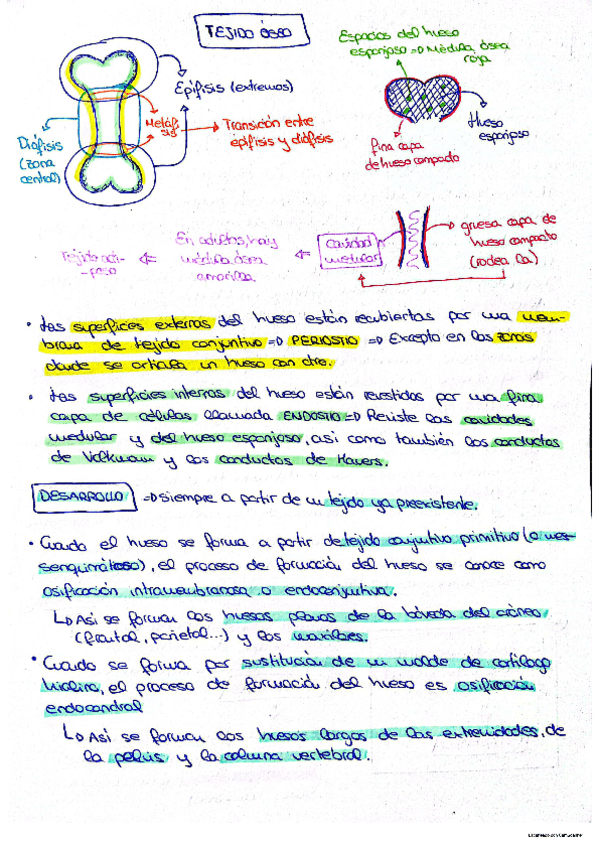 TEJIDO ÓSEO
Espacios del hueso
esponjoso => Médula ósea
roja
Epífisis (extremos)
Metáfi
sis
Transición entre
epífisis y diáfisis
Diáfisis
(zona
central)
Hueso
esponjoso
Fina capa
de hueso compacto
gruesa capa de
hueso compacto
(rodea la)
cavidad
medular
En adultos, hay
médula ósea
amarilla
Tejido adi-
poso
• Las superficies externas del hueso están recubiertas por una mem-
brana de tejido conjuntivo => PERIOSTIO => Excepto en las zonas
donde se articula un hueso con otro.
• Las superficies internas del hueso están revestidos por una fina
capa de células llamada ENDOSTIO => Reviste las cavidades
medular y del hueso esponjoso, así como también los conductos
de Volkmann y los conductos de Havers.
DESARROLLO => Siempre a partir de un tejido ya preexistente.
• Cuando el hueso se forma a partir de tejido conjuntivo primitivo (o me-
senquimátoso), el proceso de formación del hueso se conoce como
osificación intramembranosa o endoconjuntiva.
↳ Así se forman los huesos planos de la bóveda del cráneo
(frontal, parietal...) y los maxilares.
• Cuando se forma por sustitución de un molde de cartílago
hialino, el proceso de formación del hueso es osificación
endocondral
↳ Así se forman los huesos largos de las extremidades, de
la pelvis y la columna vertebral.